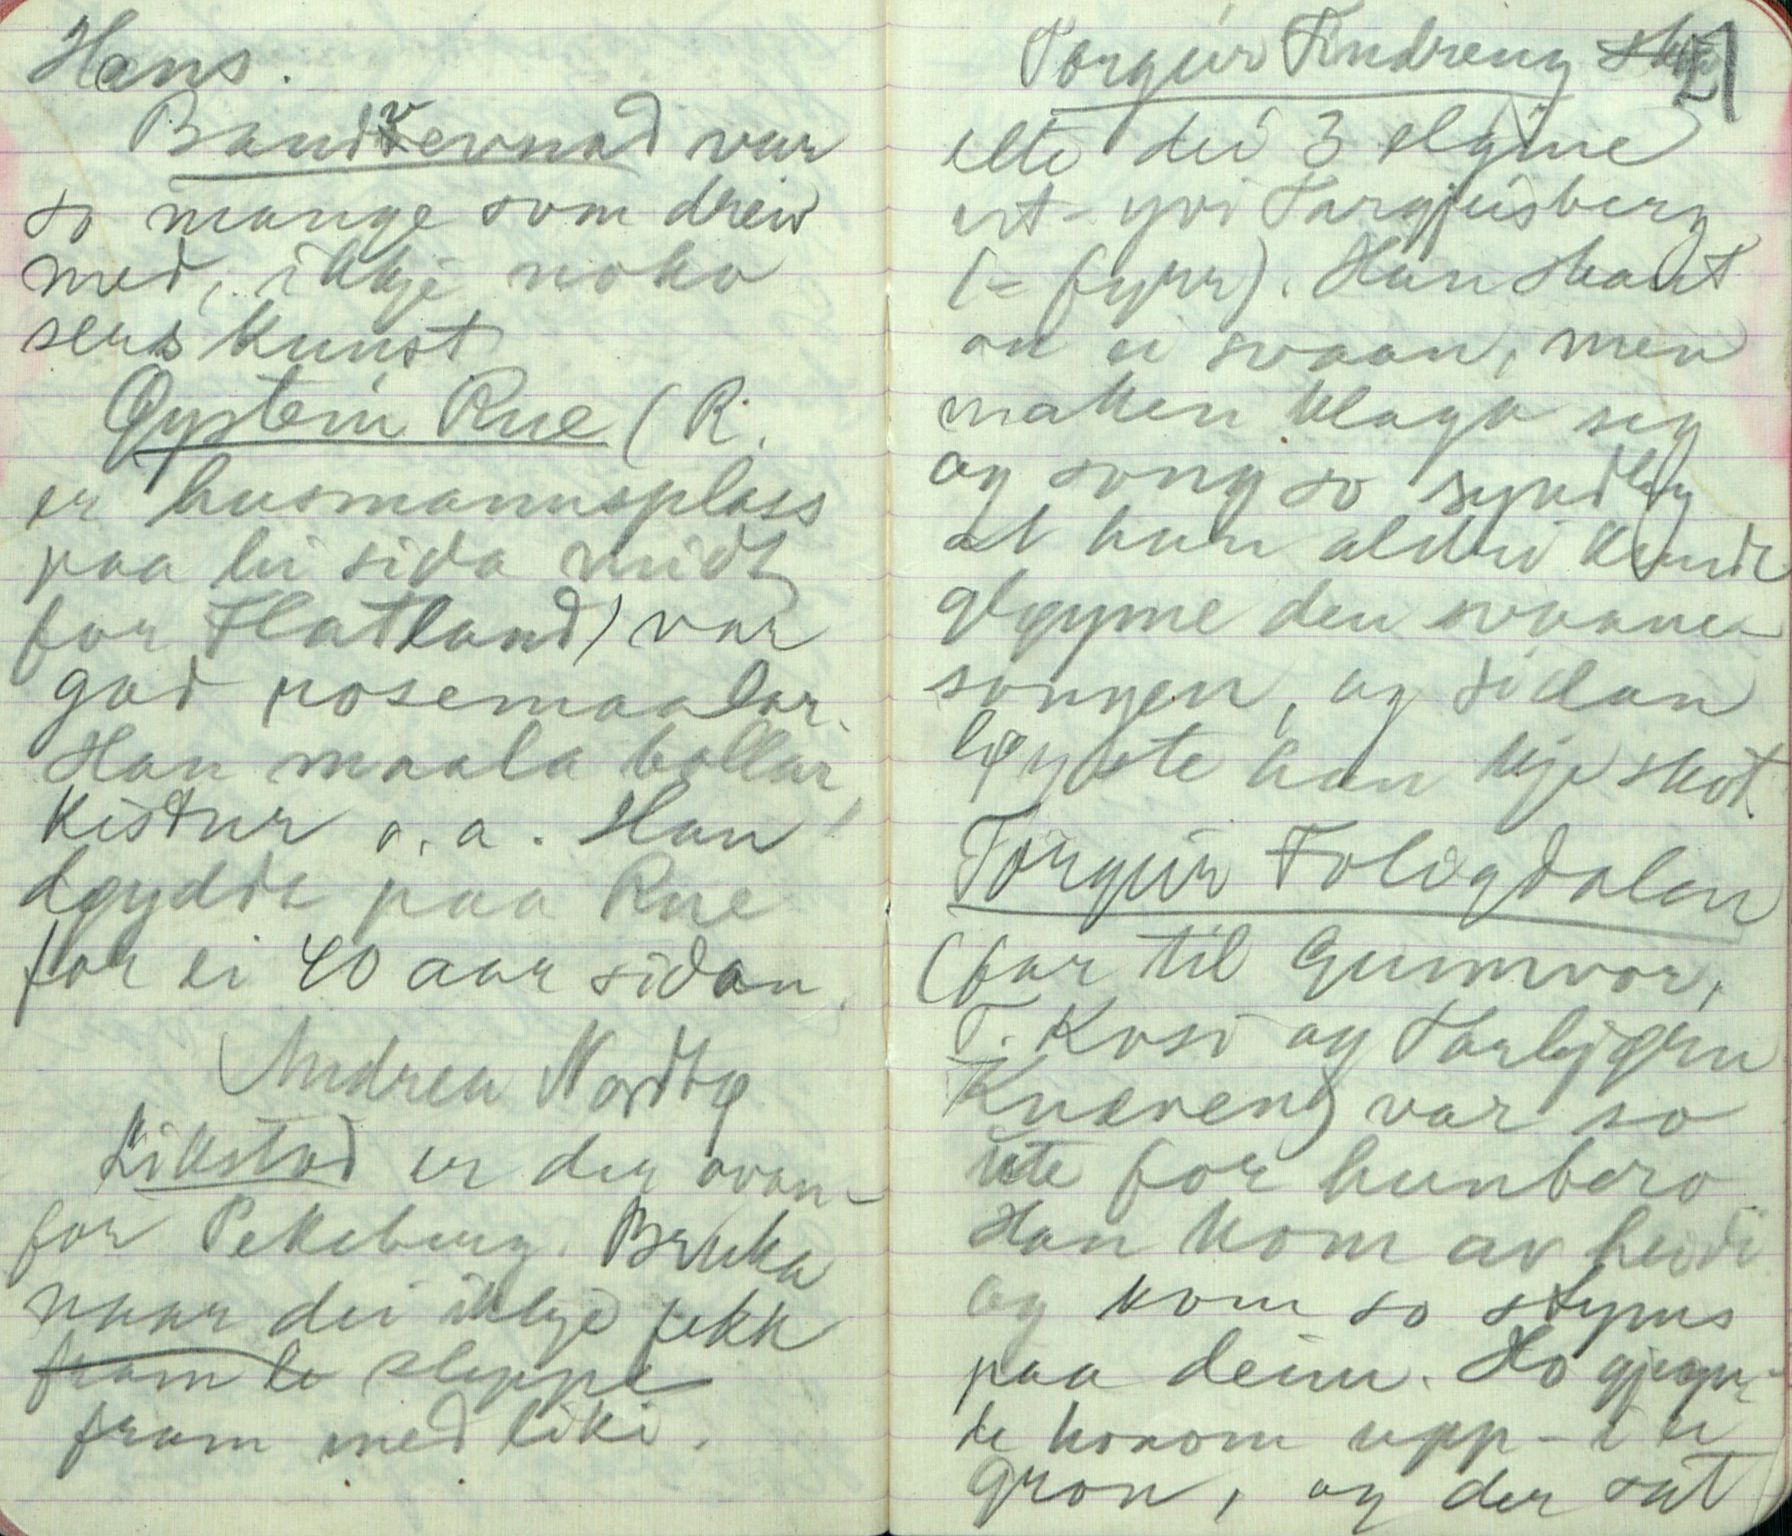 Hans.
Bandvevnad var
so mange som dreiv
med, ikkje noko
sers kunst
Øystein Rue (R.
er husmannsplass
paa lii sida midt
for Flatland) var
god rosemaalar.
Han maala bollar,
kistur o.a. Han
døydde paa Rue
for ei 40 aar sidan.
Andrea Nordbø
Likstod er der ovan-
for Pekeberg. Bruka
naar dei ikkje fekk
fram le sleppe
fram med liki.
Torgeir Findreng
21
elte dei 3 elgine
ut-yvi Targjeisberg
(= fyrr). Han skaut
on ei svaan, men
maken klaga seg
og song so syndleg
at han aldri kunde
gløyme den svaane-
songen, og sidan
løyste han kje skot.
Torgeir Foligdalen
(far til Gunnvor,
T. Kvsi og Torbjørn
Knæreng) var so
ute for hunbero
Han kom av heidi
og kom so styrus
paa deim. Ho gjøym-
de honom upp-i ei
gron, og der sat